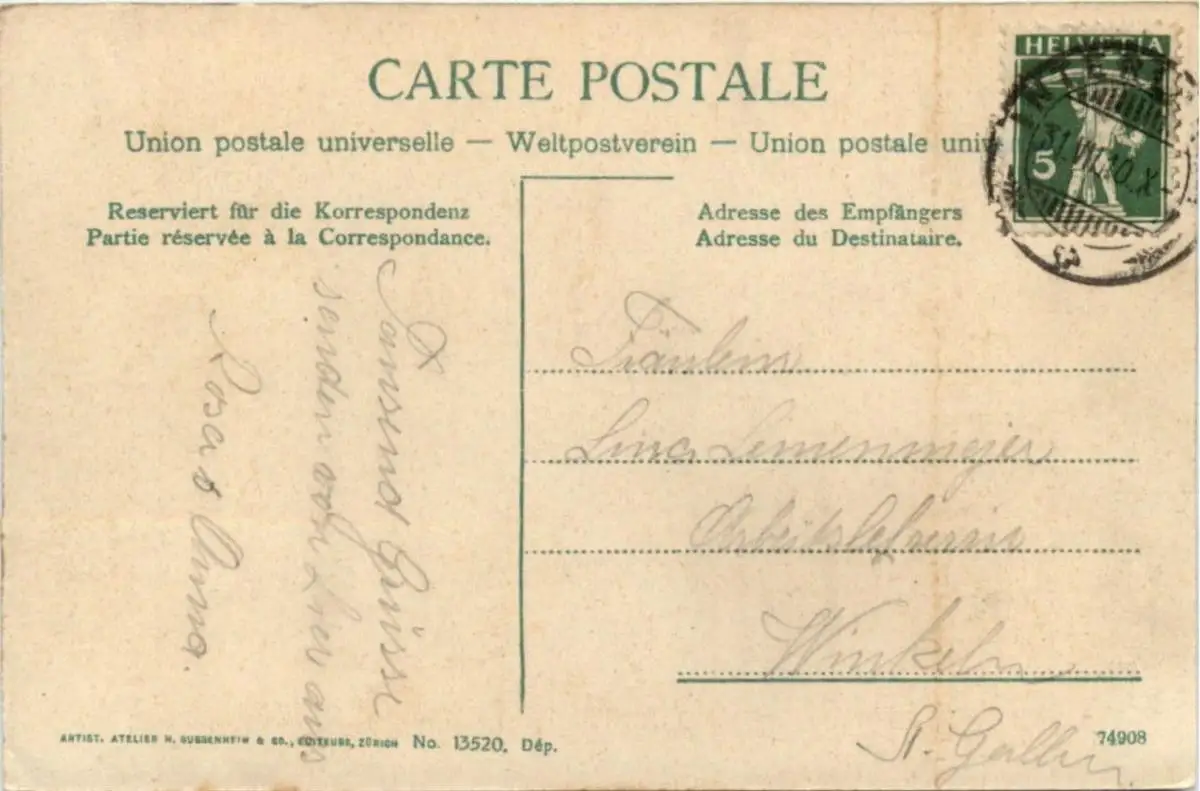 CARTE POSTALE
Union postale universelle — Weltpostverein — Union postale univ
HELVETIA
5
31.VII.10.X
Reserviert für die Korrespondenz
Partie réservée à la Correspondance.
Adresse des Empfängers
Adresse du Destinataire.
Tausend Grüsse
senden von hier aus
Rosa & Anna.
Fräulein
Lina
Arbeitslehrerin
Winkeln
St. Gallen.
ARTIST. ATELIER H. GUGGENHEIM & CO., EDITEURS, ZÜRICH No. 13520, Dép.
74908